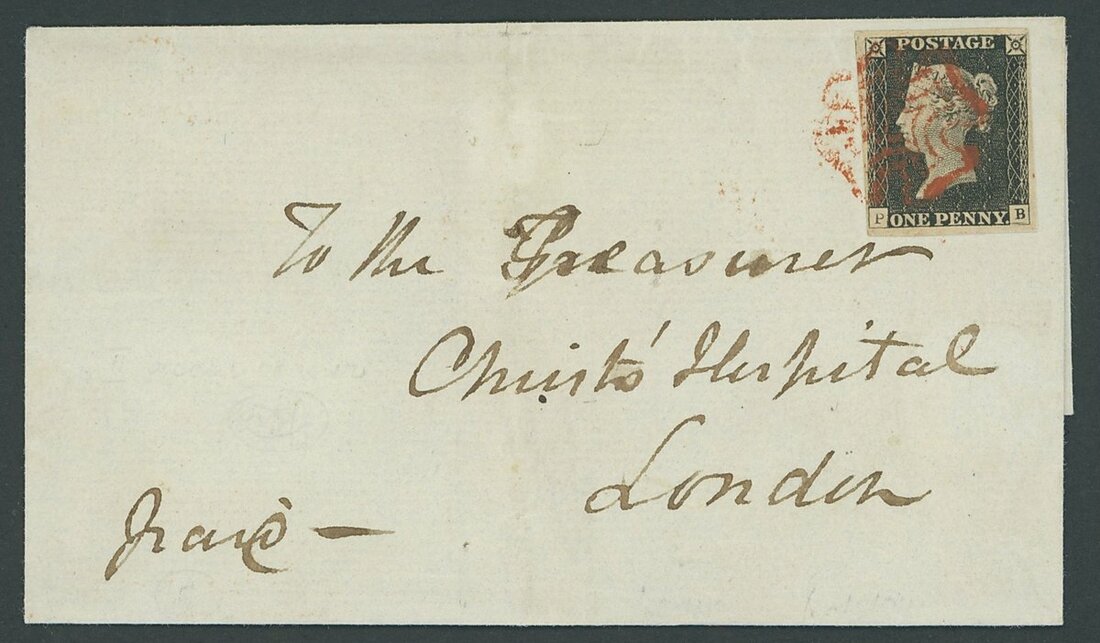 POSTAGE
P ONE PENNY. B
To the Treasurer
Christs' Hospital
London
Paid —